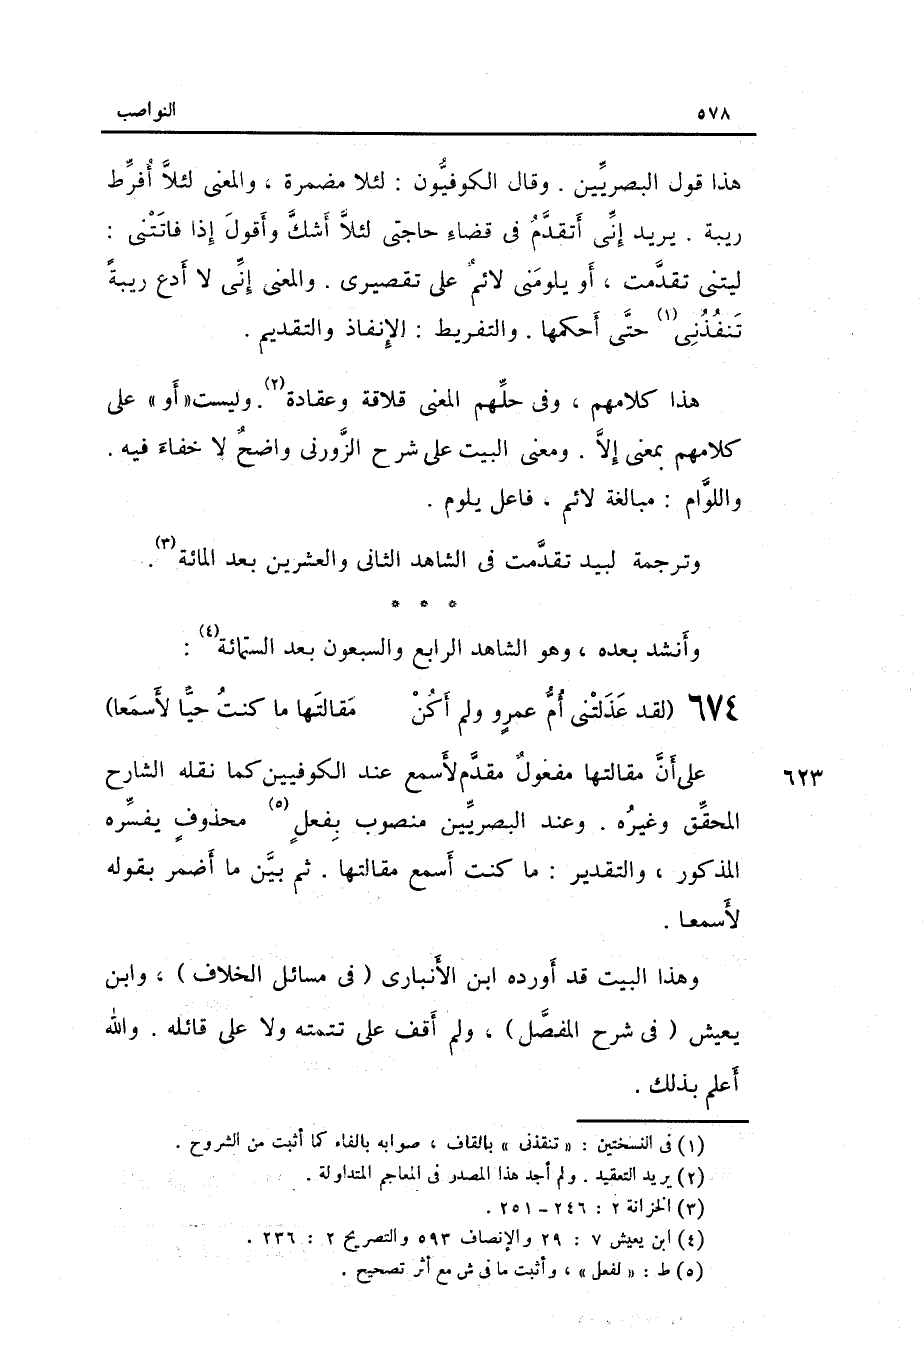 ٥٧٨ النواصب
هذا قول البصريِّين . وقال الكوفيُّون : لئلا مضمرة ، والمعنى لئلاَّ أُفرِّط
ريبة . يريد إنِّى أتقدَّمُ فى قضاء حاجتى لئلاَّ أشكَّ وأقولَ إذا فاتَتْنى :
ليتنى تقدَّمت ، أو يلومَنى لائمٌ على تقصيرى . والمعنى إنِّى لا أدع ريبةً
تَنفُذُنِى(١) حتَّى أحكمها . والتفريط : الإنفاذ والتقديم .
هذا كلامهم ، وفى حلِّهم المعنى قلاقة وعقادة(٢). وليست«أو» على
كلامهم بمعنى إلاَّ . ومعنى البيت على شرح الزَّورنى واضحٌ لا خفاءَ فيه .
واللوَّام : مبالغة لائم ، فاعل يلوم .
وترجمة لبيد تقدَّمت فى الشاهد الثانى والعشرين بعد المائة(٣).
* * *
وأنشد بعده ، وهو الشاهد الرابع والسبعون بعد الستمائة(٤) :
٦٧٤ (لقد عَذَلتْنى أُمُّ عمرٍو ولم أكُنْ مَقالتَها ما كنتُ حيًّا لأسمَعا)
على أنَّ مقالتها مفعولٌ مقدَّم لأسمع عند الكوفيين كما نقله الشارح ٦٢٣
المحقِّق وغيرُه . وعند البصريِّين منصوب بِفعلٍ(٥) محذوفٍ يفسِّره
المذكور ، والتقدير : ما كنت أسمع مقالتها . ثم بيَّن ما أضمر بقوله
لأَسمعا .
وهذا البيت قد أورده ابن الأَنبارى ( فى مسائل الخلاف ) ، وابن
يعيش ( فى شرح المفصَّل ) ، ولم أقف على تتمته ولا على قائله . والله
أعلم بذلك .
(١) فى النسختين : « تنقذنى » بالقاف ، صوابه بالفاء كما أثبت من الشروح .
(٢) يريد التعقيد . ولم أجد هذا المصدر فى المعاجم المتداولة .
(٣) الخزانة ٢ : ٢٤٦ – ٢٥١ .
(٤) ابن يعيش ٧ : ٢٩ والإنصاف ٥٩٣ والتصريح ٢ : ٢٣٦ .
(٥) ط : « لفعل » ، وأثبت ما فى ش مع أثر تصحيح .